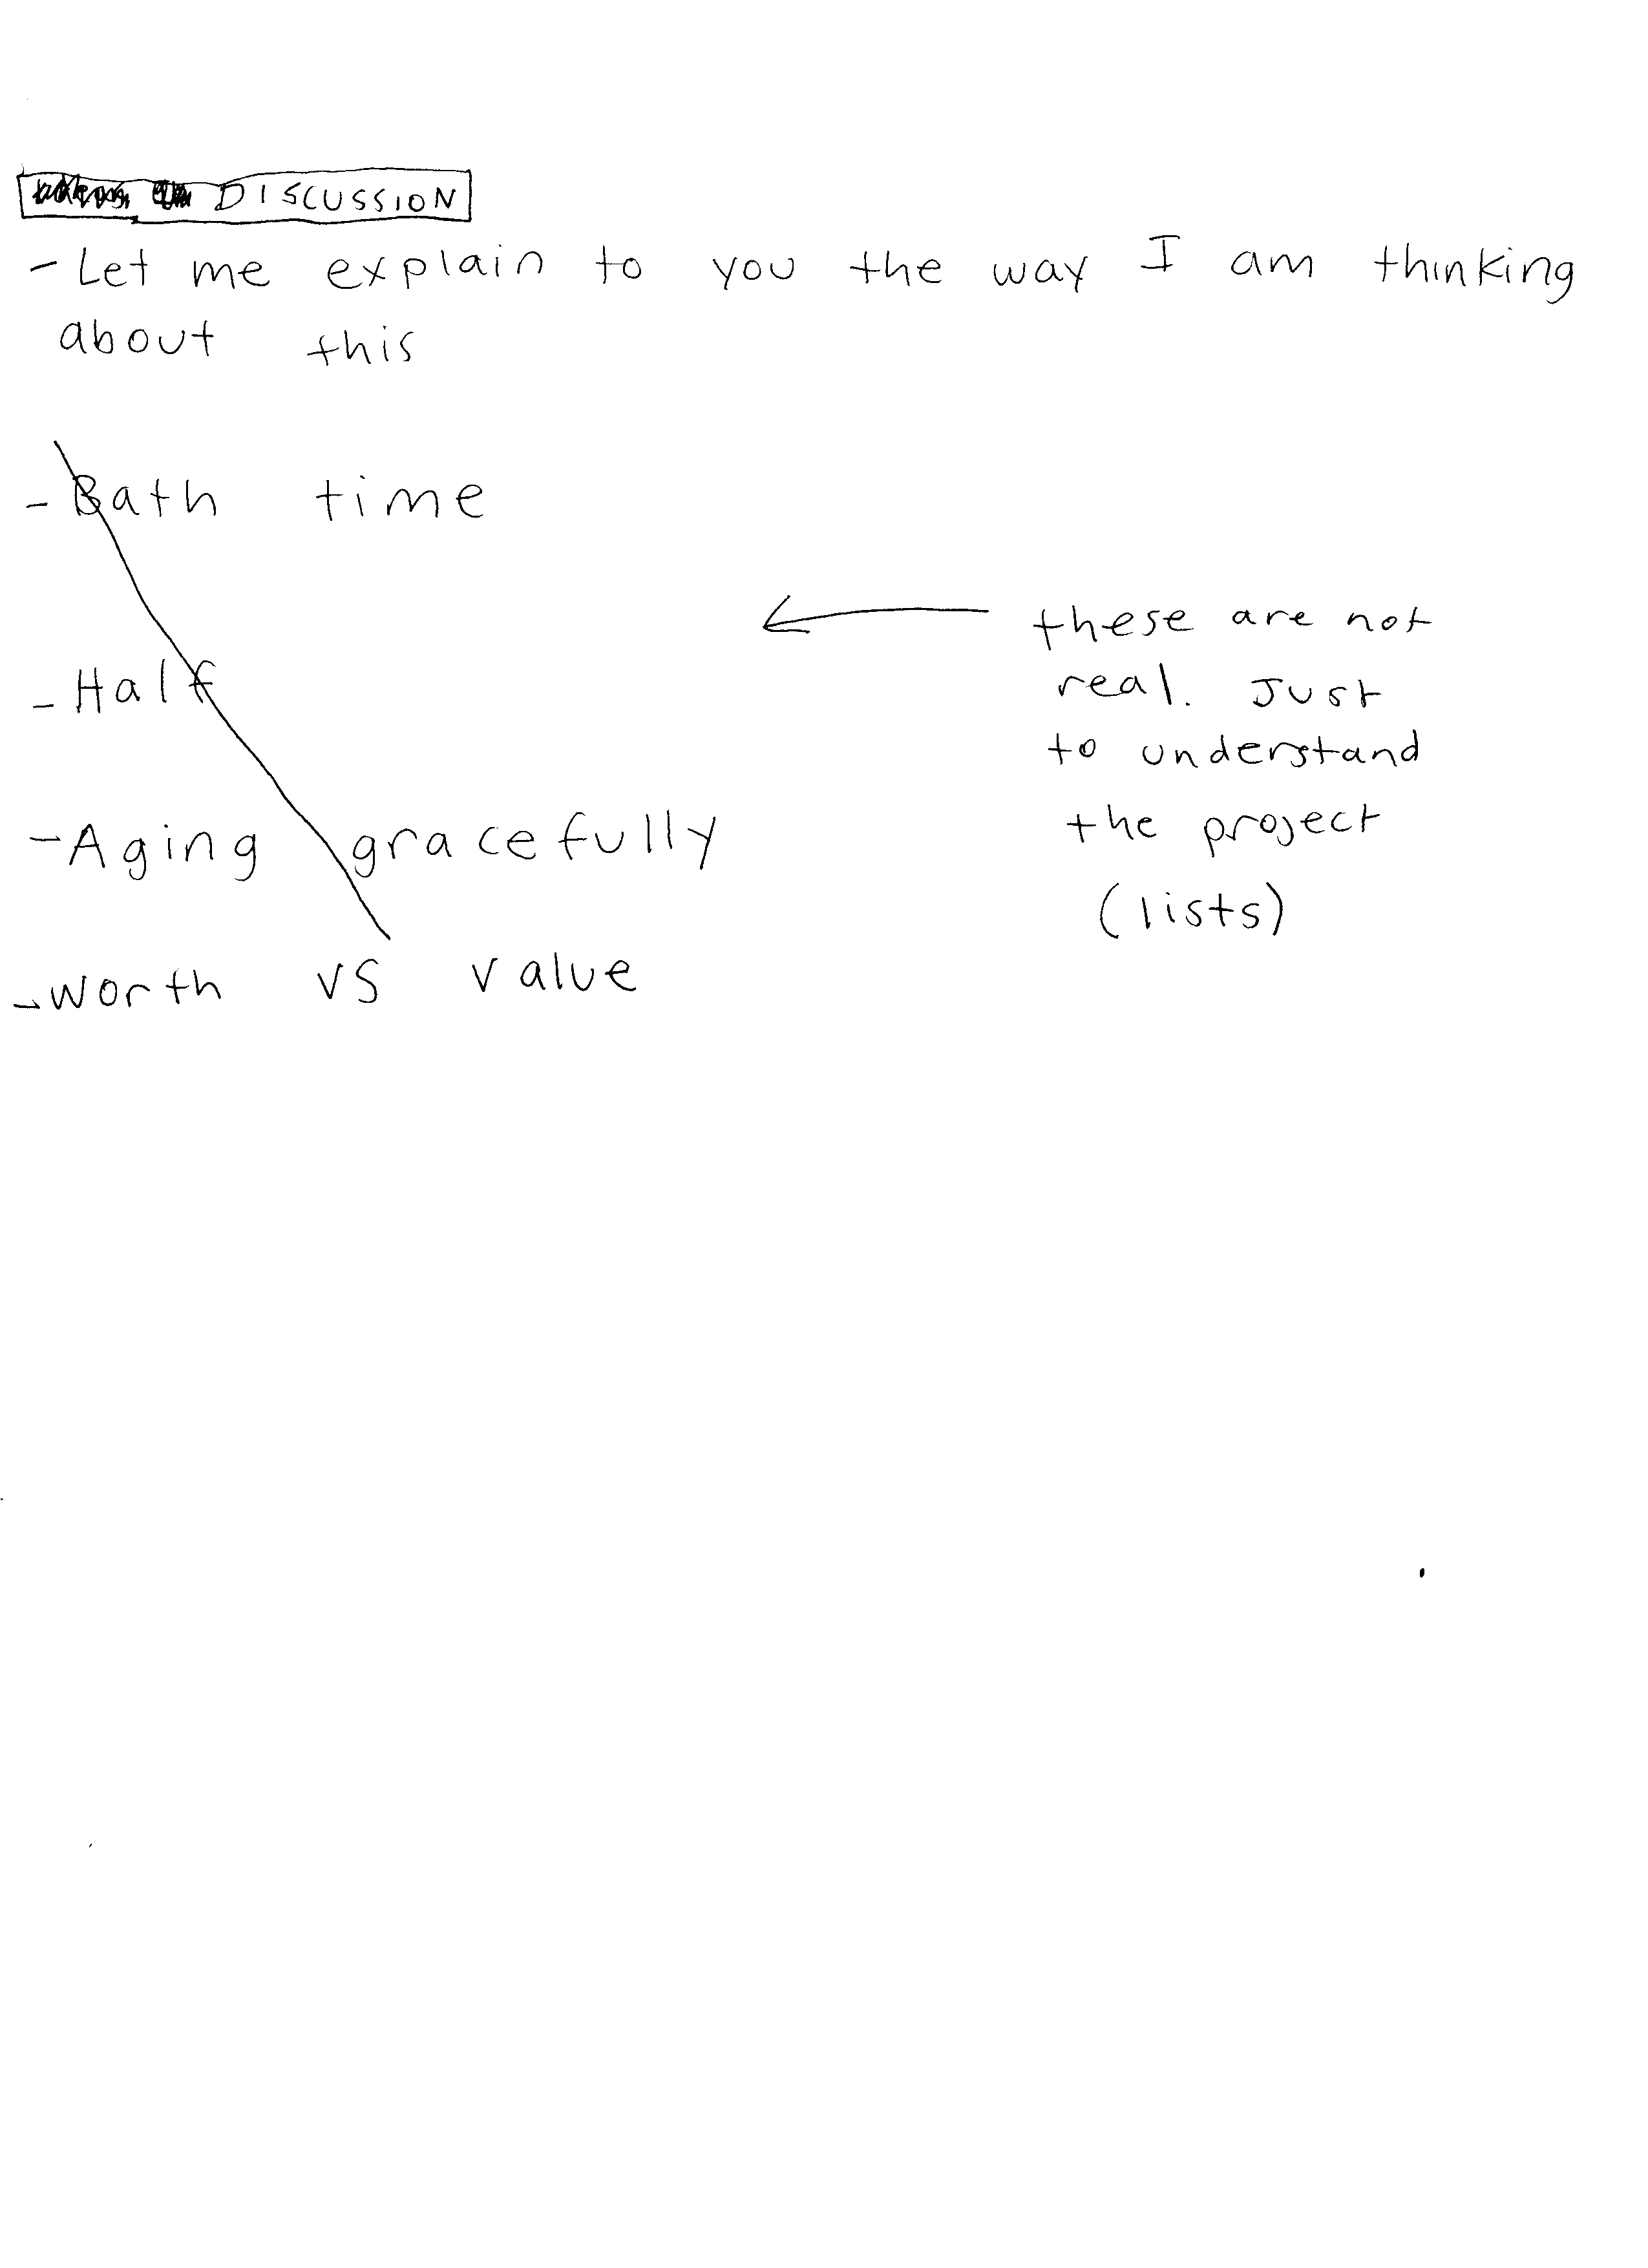 DISCUSSION
- Let me explain to you the way I am thinking
about this
- Bath time
- Half
- Aging gracefully
- worth vs value
these are not
real. Just
to understand
the project
(lists)